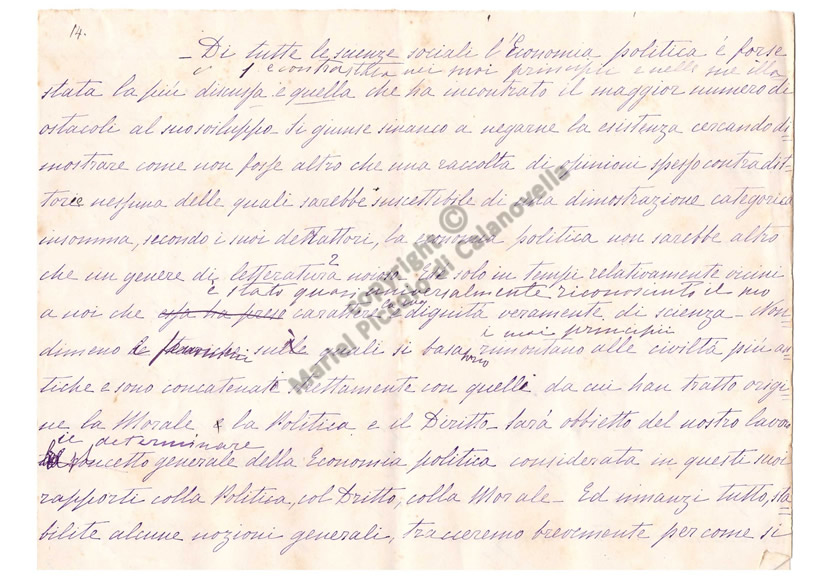 14.
– Di tutte le scienze sociali l'Economia politica é forse
e contrastata nei suoi principii e nelle sue illa
stata la più discussa e quella che ha incontrato il maggior numero di
ostacoli al suo sviluppo. Si giunse sinanco a negarne la esistenza cercando di=
mostrare come non fosse altro che una raccolta di opinioni spesso contradit=
torie nessuna delle quali sarebbe suscettibile di una dimostrazione categorica
insomma, secondo i suoi dettattori, la Economia politica non sarebbe altro
che un genere di letteratura nuova. Ed è solo in tempi relativamente vicini
è stato quasi universalmente riconosciuto il suo
a noi che essa ha preso carattere e dignità veramente di scienza – Non=
i suoi principii
dimeno le sulle quali si basa rimontano alle civiltà più an=
tiche e sono concatenati strettamente con quelli da cui han tratto origi=
ne la Morale la Politica e il Diritto. Sarà obbietto del nostro lavoro
il determinare
concetto generale della Economia politica considerata in questi suoi
rapporti colla Politica, col Dritto, colla Morale – Ed innanzi tutto, sta=
bilite alcune nozioni generali, tracceremo brevemente per come si
copyright ©
Mariel Piccolo di Calanovella